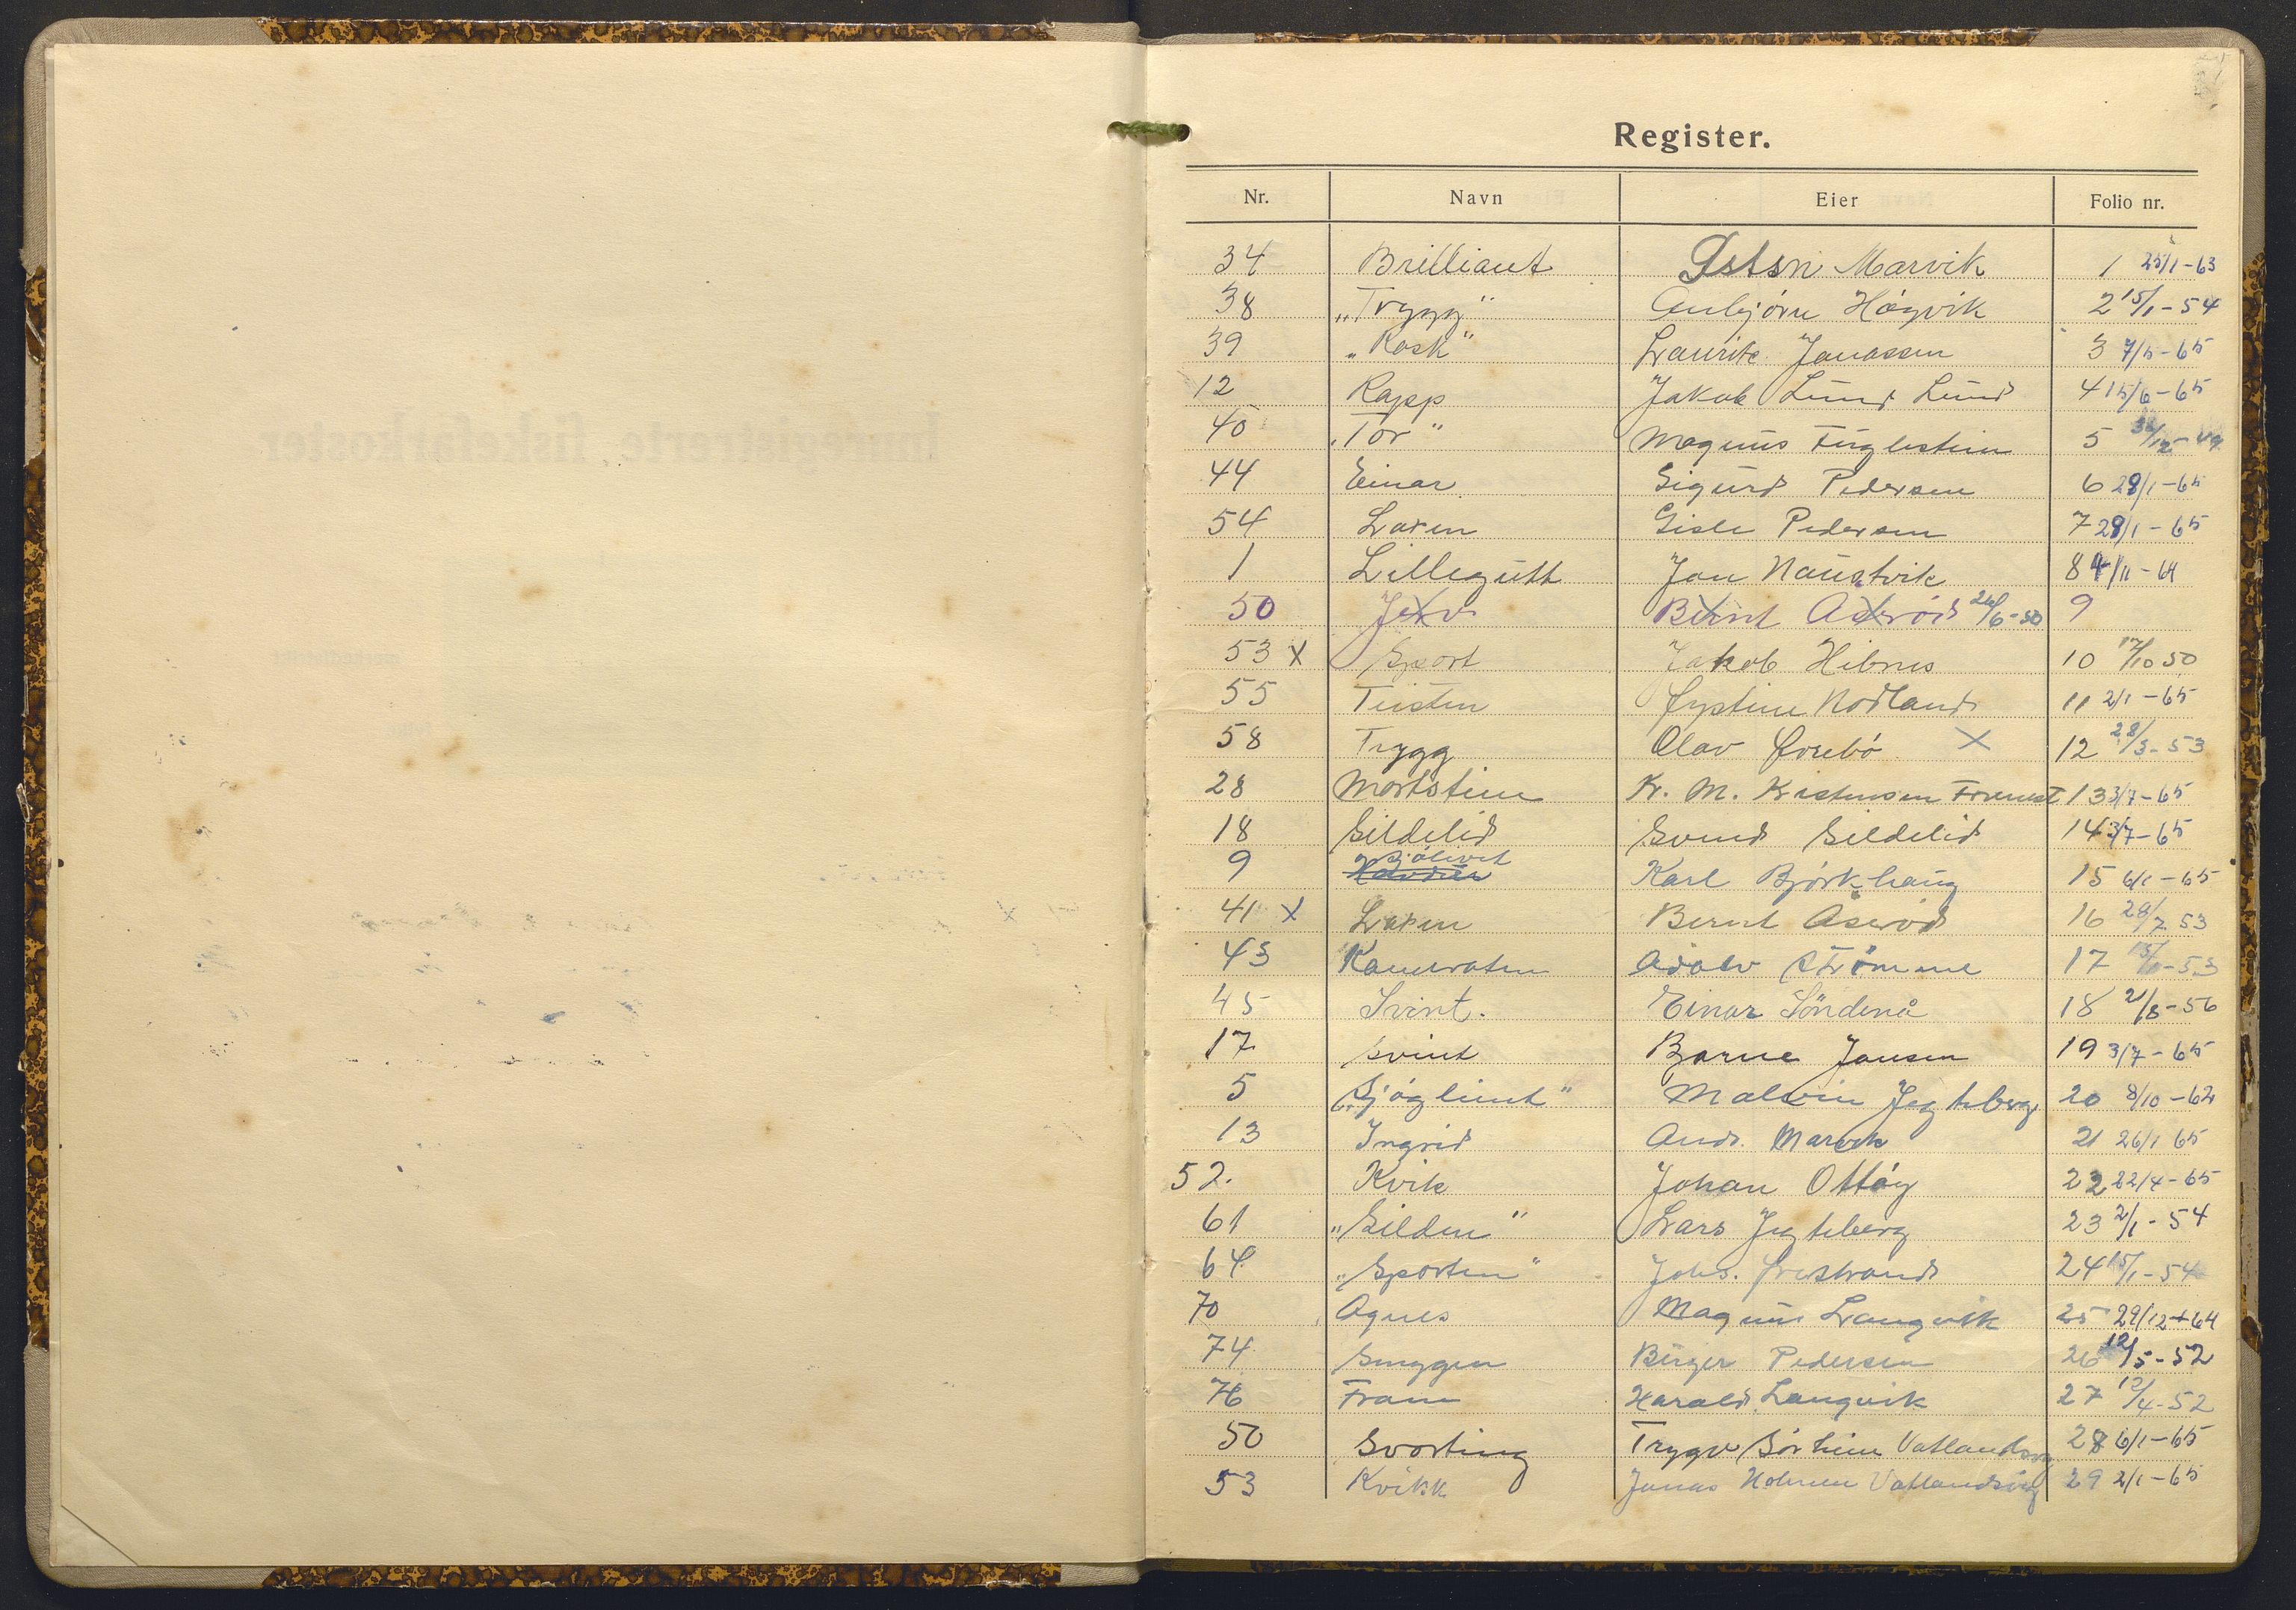 Register.
Nr. Navn Eier Folio nr.
34 Brilliant Marvik 1 25/1-63
38 „Trygg" Anbjörn Högvik 2 15/1-54
39 „Rask" Lauritz Jonassen 3 7/5-65
12 Rapp Jakob Lund Lund 4 15/6-65
40 „Tor" Magnus Fuglestein 5
44 Einar Sigurd Pedersen 6 28/1-65
54 Laxen Gisle Pedersen 7 28/1-65
1 Lillegutt Jan Naustvik 8 4/11-64
50 Jerv Bernt Aseröd 26/6-50 9
53 X Sport Jakob Hibnes 10 17/10 50
55 Teisten Öystein Nodland 11 2/1-65
58 Trygg Olav X 12 28/3-53
28 Mortstein Kr. M. Kristensen 13 3/7-65
18 Sildelid Svend Sildelid 14 3/7-65
9 Sjölivet Karl Björkhaug 15 6/1-65
41 X Laxen Bernt Åseröd 16 28/7 53
43 Kameraten Adolv Strömme 17 15/1-53
45 Svint. Einar Söndenå 18 21/8-56
17 Svint Bjarne Jansen 19 3/7-65
5 „Sjöglimt" Malvin Jegteberg 20 8/10-62
13 Ingrid And. Marvik 21 26/1 65
52. Kvik Johan Ottöy 22 22/4-65
61 „Silden" Lars Jegteberg 23 2/1-54
64 „Sporten" Johs. Örestrand 24 15/1-54
70 Agnes Magnus Langvik 25 29/12-64
74 Smyggen Birger Pedersen 26 12/5-52
76 Fram Harald Langvik 27 12/4-52
50 Svorting Trygv Sörheim Vatlandsvåg 28 6/1-65
53 Kvikk Jonas Holmen Vatlandsvåg 29 2/1-65